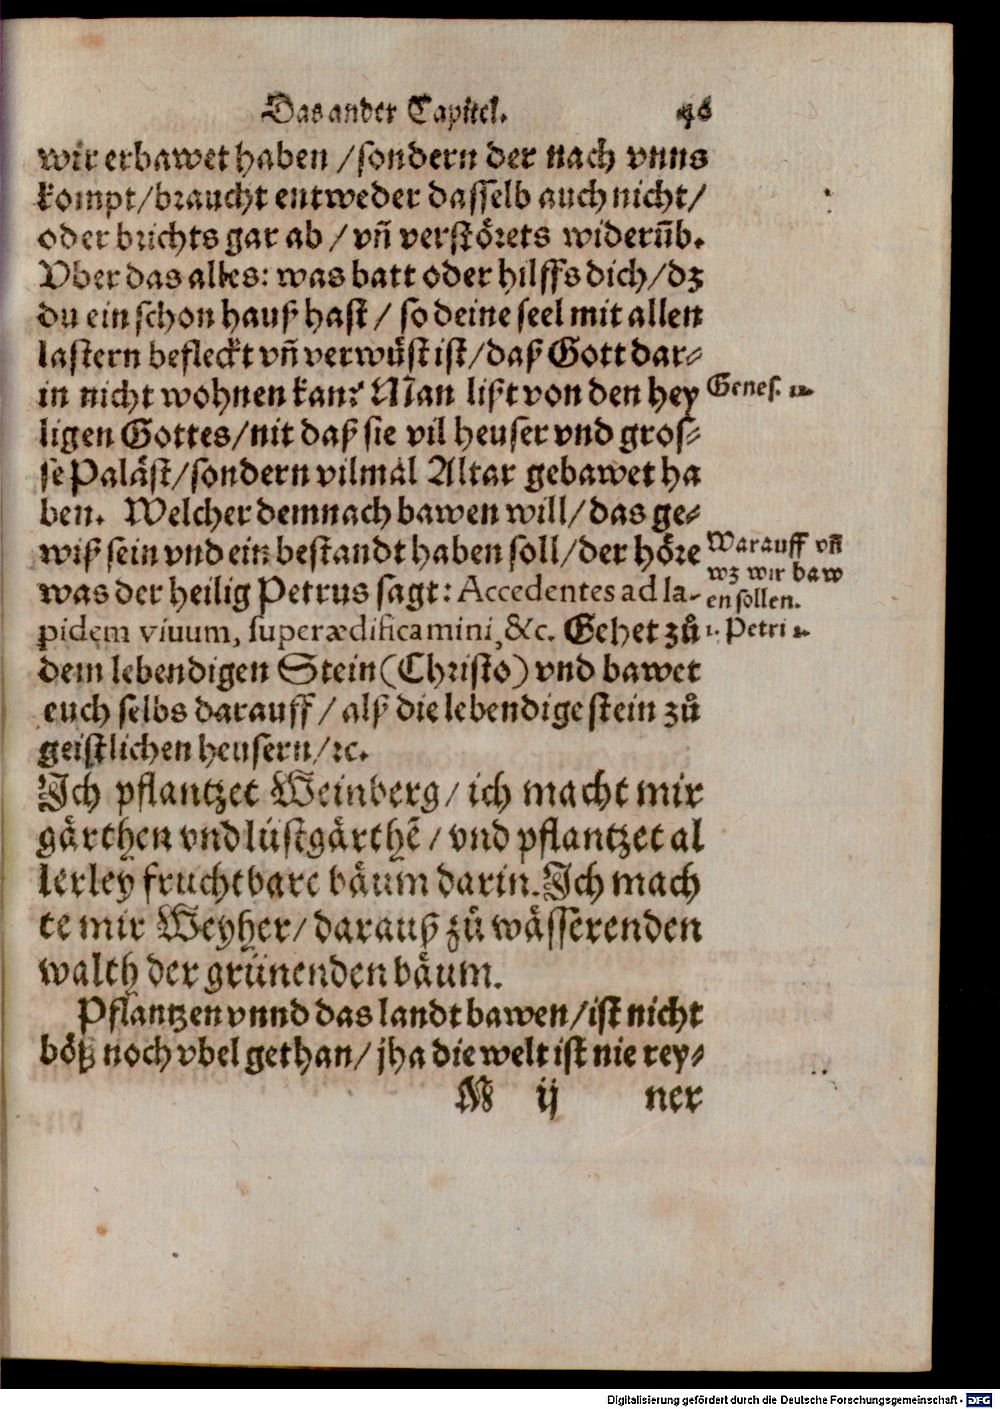 Das ander Capitel. 46
wir erbawet haben / sondern der nach vnns
kompt / braucht entweder dasselb auch nicht /
oder brichts gar ab / vñ verstörets widerūb.
Vber das alles: was batt oder hilffs dich / dz
du ein schon hauß hast / so deine seel mit allen
lastern befleckt vñ verwüst ist / daß Gott dar-
in nicht wohnen kan? Man lißt von den hey
Genes. 12.
ligen Gottes / nit daß sie vil heuser vnd gros-
se Paläst / sondern vilmal Altar gebawet ha
ben. Welcher demnach bawen will / das ge-
wiß sein vnd ein bestandt haben soll / der höre
Warauff vñ
wz wir baw
en sollen.
was der heilig Petrus sagt: Accedentes ad la-
pidem viuum, superædificamini, &c. Gehet zů
1. Petri 2.
dem lebendigen Stein (Christo) vnd bawet
euch selbs darauff / alß die lebendige stein zů
geistlichen heusern / ꝛc.
Ich pflantzet Weinberg / ich macht mir
gärthen vnd lüstgärthē / vnd pflantzet al
lerley fruchtbare bäum darin. Ich mach
te mir Weyher / darauß zů wässeren den
walth der grünenden bäum.
Pflantzen vnnd das landt bawen / ist nicht
böß noch vbel gethan / jha die welt ist nie rey-
M ij ner
Digitalisierung gefördert durch die Deutsche Forschungsgemeinschaft - DFG